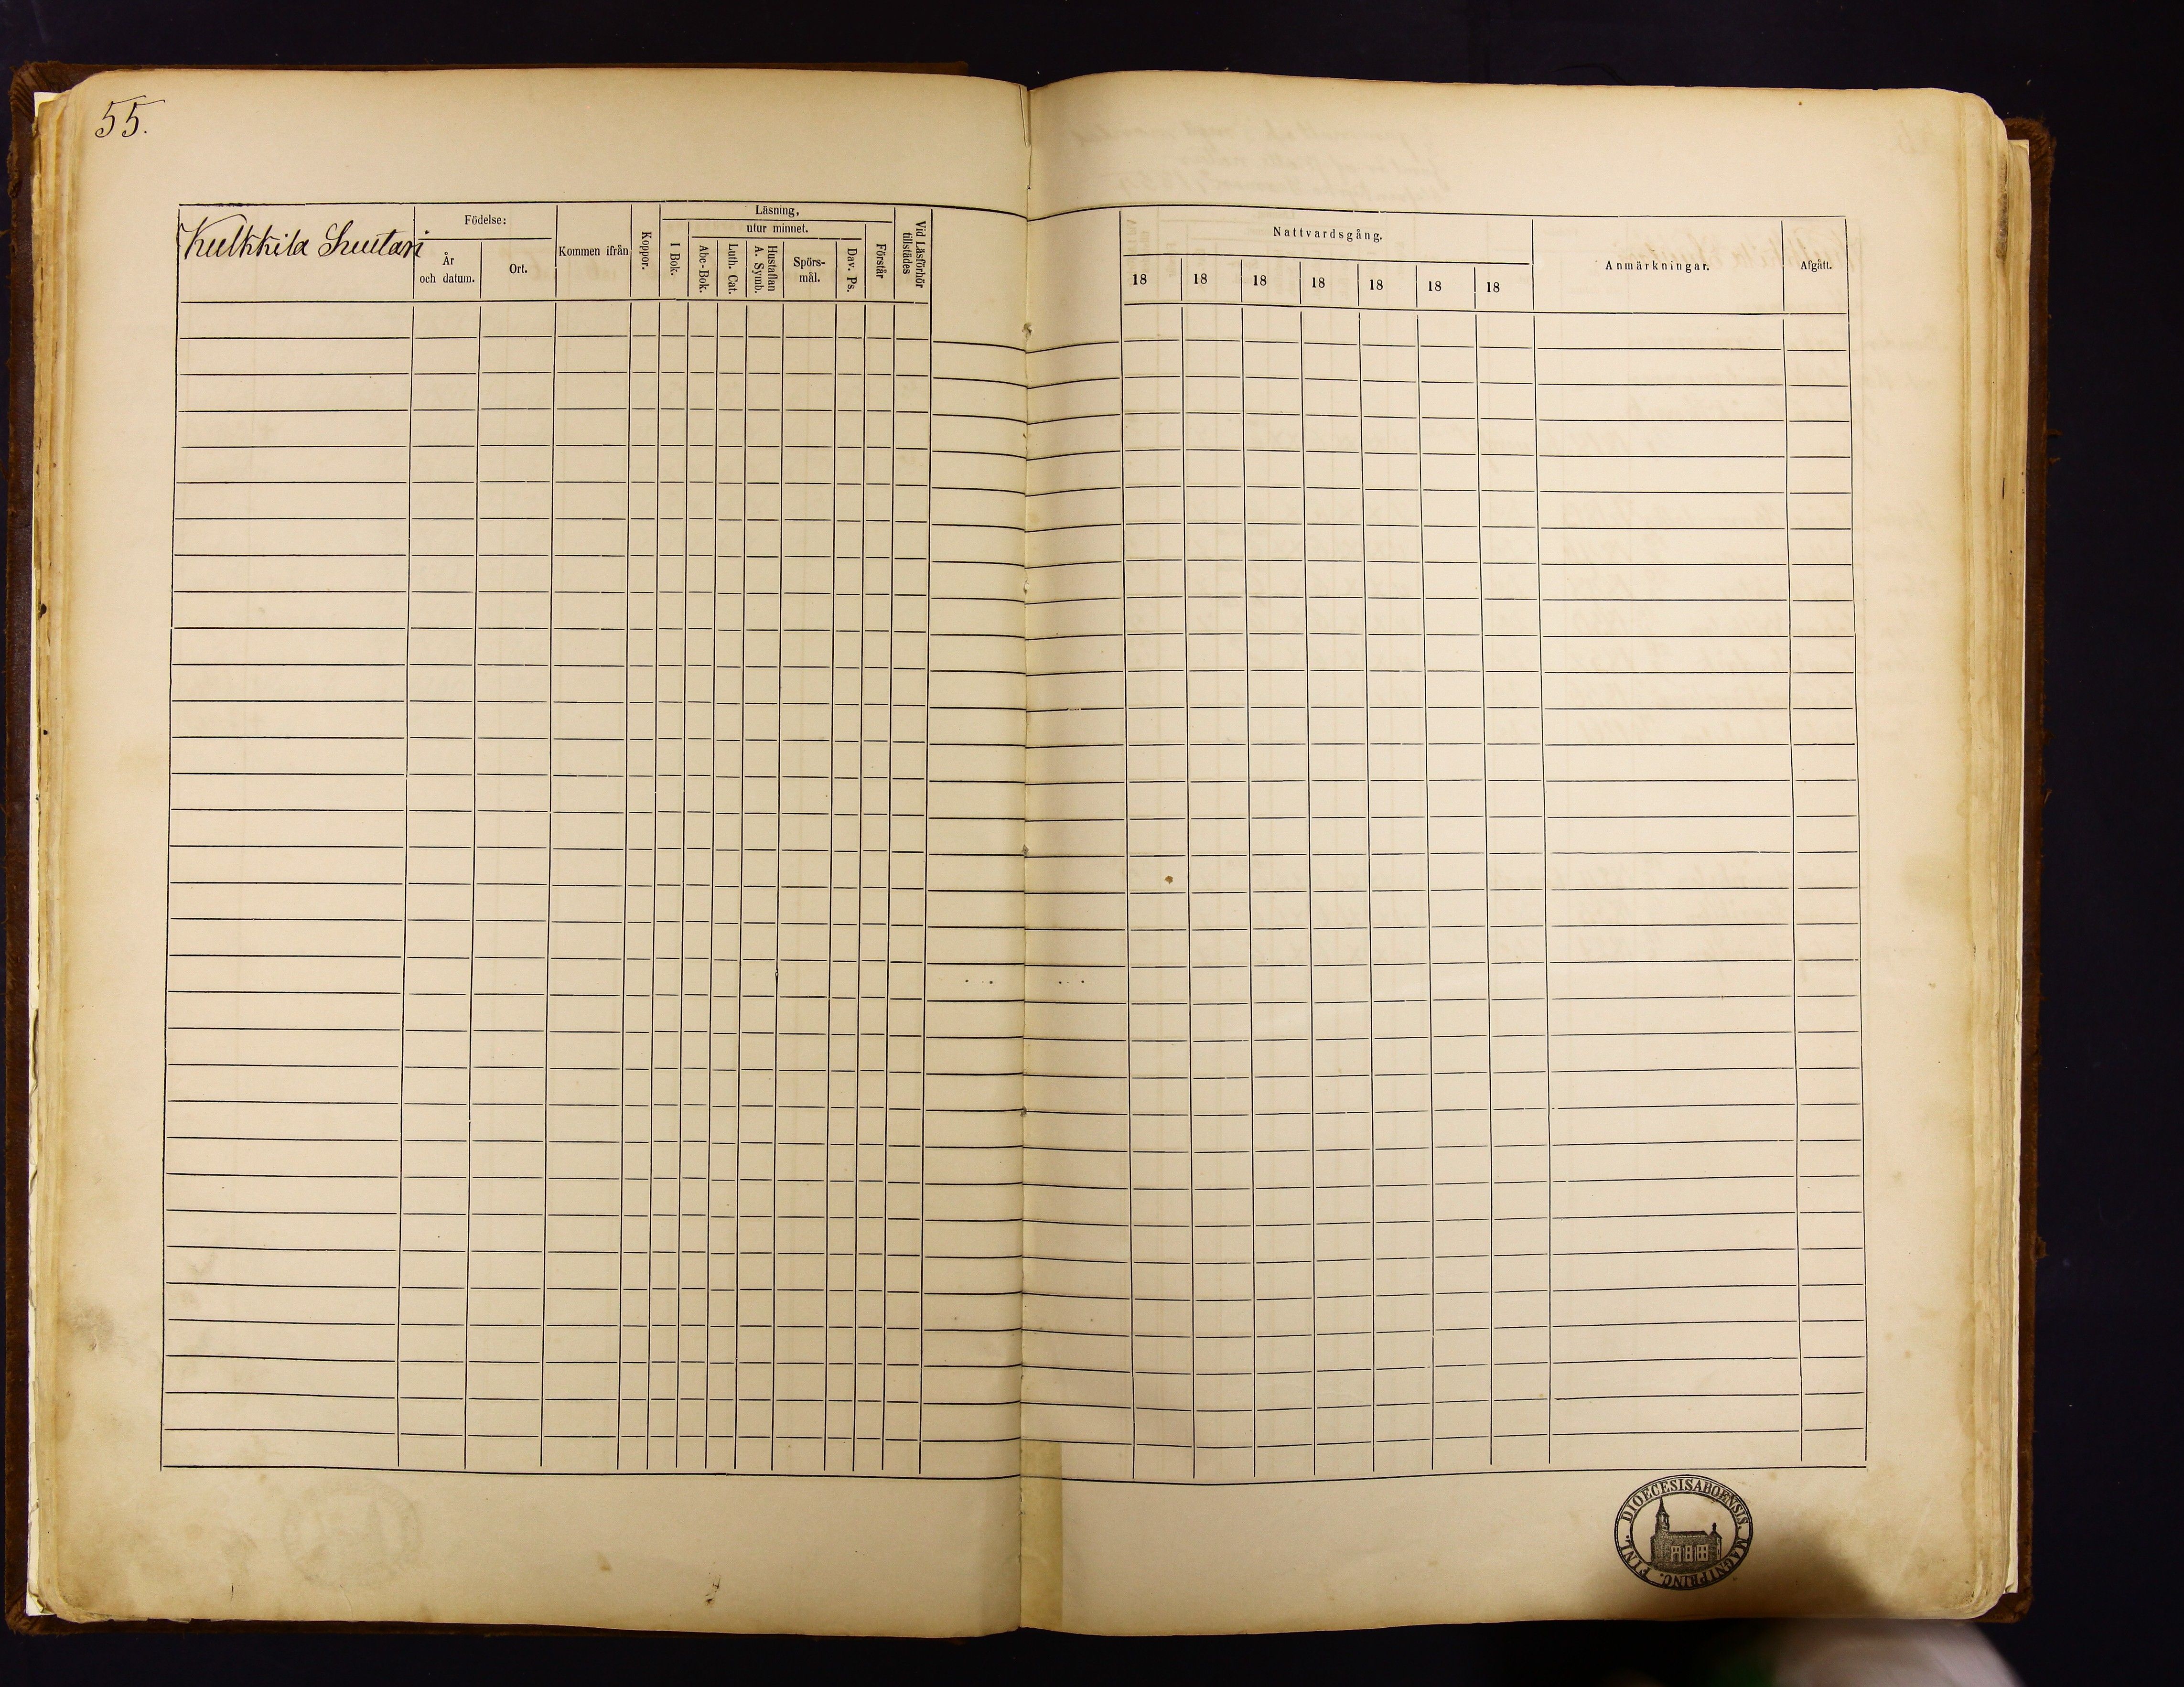 55.
Kulkkila Suutari
Födelse:
År
och datum.
Ort.
Kommen ifrån
Koppor.
Läsning,
utur minnet.
I Bok.
Abc-Bok.
Luth. Cat.
Hustaflan
A. Symb.
Spörs-
mål.
Dav. Ps.
Förstår
Vid Läsförhör
tillstädes
Nattvardsgång.
18 18 18 18 18 18 18
Anmärkningar.
Afgått.
DIOECESIS ABOENSIS. MAGNI PRINC. FINL.